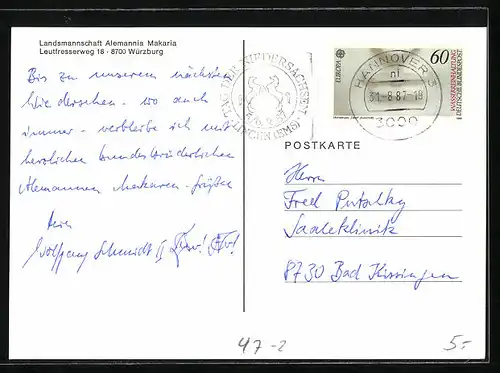 Landsmannschaft Alemannia Makaria
Leutfresserweg 18 · 8700 Würzburg
Bis zu unserem nächsten
Wiedersehen - wo auch
immer - verbleibe ich mit
herzlichen bundesbrüderlichen
Alemannen Makaren-Grüßen
Dein
Wolfgang Schmidt II
TAG DER NIEDERSACHSEN
LINGEN (EMS)
HANNOVER 3
31.-8.87-18
3000
EUROPA
60
WASSERREINHALTUNG
DEUTSCHE BUNDESPOST
POSTKARTE
Herrn
Fred Putschky
Saaleklinik
8730 Bad Kissingen
47-2
5.-